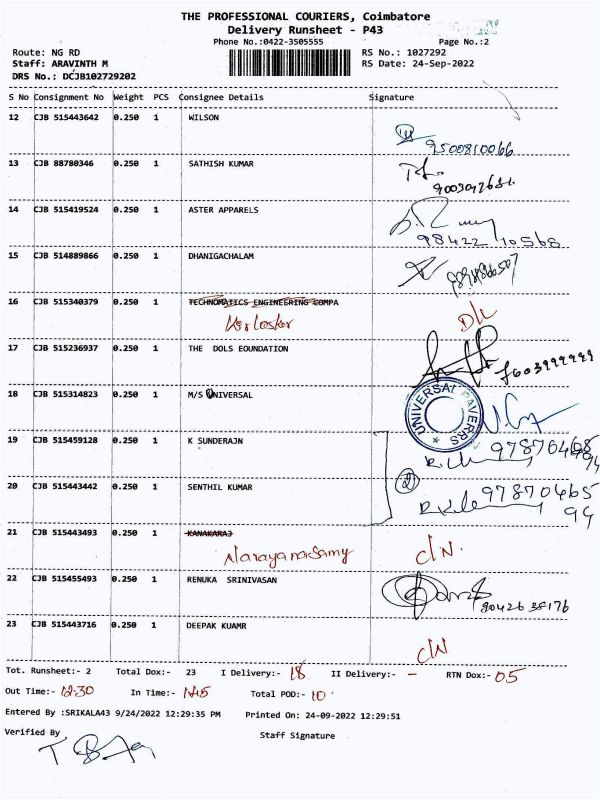 THE PROFESSIONAL COURIERS, Coimbatore
Delivery Runsheet - P43
Phone No.:0422-3505555 Page No.:2
Route: NG RD RS No.: 1027292
Staff: ARAVINTH M RS Date: 24-Sep-2022
DRS No.: DCJB102729202
S No Consignment No Weight PCS Consignee Details Signature
12 CJB 515443642 0.250 1 WILSON
9500810066
13 CJB 88780346 0.250 1 SATHISH KUMAR
14 CJB 515419524 0.250 1 ASTER APPARELS
98422 10568
15 CJB 514889866 0.250 1 DHANIGACHALAM
16 CJB 515340379 0.250 1 TECHNOMATICS ENGINEERING COMPA
D/L
17 CJB 515236937 0.250 1 THE DOLS EOUNDATION
18 CJB 515314823 0.250 1 M/S UNIVERSAL
UNIVERSAL PAVERRS
19 CJB 515459128 0.250 1 K SUNDERAJN
20 CJB 515443442 0.250 1 SENTHIL KUMAR
2 97870465
94
21 CJB 515443493 0.250 1 KANAKARAJ
Narayanasamy C/N.
22 CJB 515455493 0.250 1 RENUKA SRINIVASAN
23 CJB 515443716 0.250 1 DEEPAK KUAMR
C/N
Tot. Runsheet:- 2 Total Dox:- 23 I Delivery:- 18 II Delivery:- - RTN Dox:- 05
Out Time:- 12.30 In Time:- Total POD:- 10
Entered By :SRIKALA43 9/24/2022 12:29:35 PM Printed On: 24-09-2022 12:29:51
Verified By Staff Signature